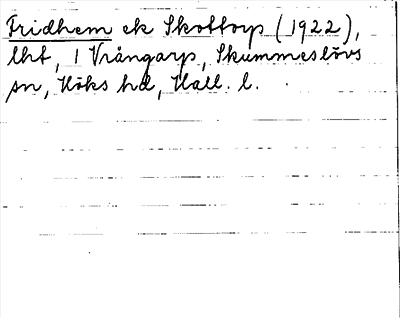 Fridhem ek Skottorp (1922),
lht, 1 Vrångarp, Skummeslövs
sn, Höks hd, Hall. l.